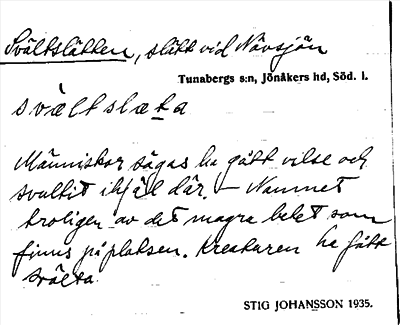 Svältslätten, slätt vid Navsjön
Tunabergs s:n, Jönåkers hd, Söd. l.
svàltslæta
Människor sägas ha gått vilse och
svultit ihjäl där. – Namnet
troligen av det magra betet som
finns på platsen. Kreaturen ha fått
svälta.
STIG JOHANSSON 1935.